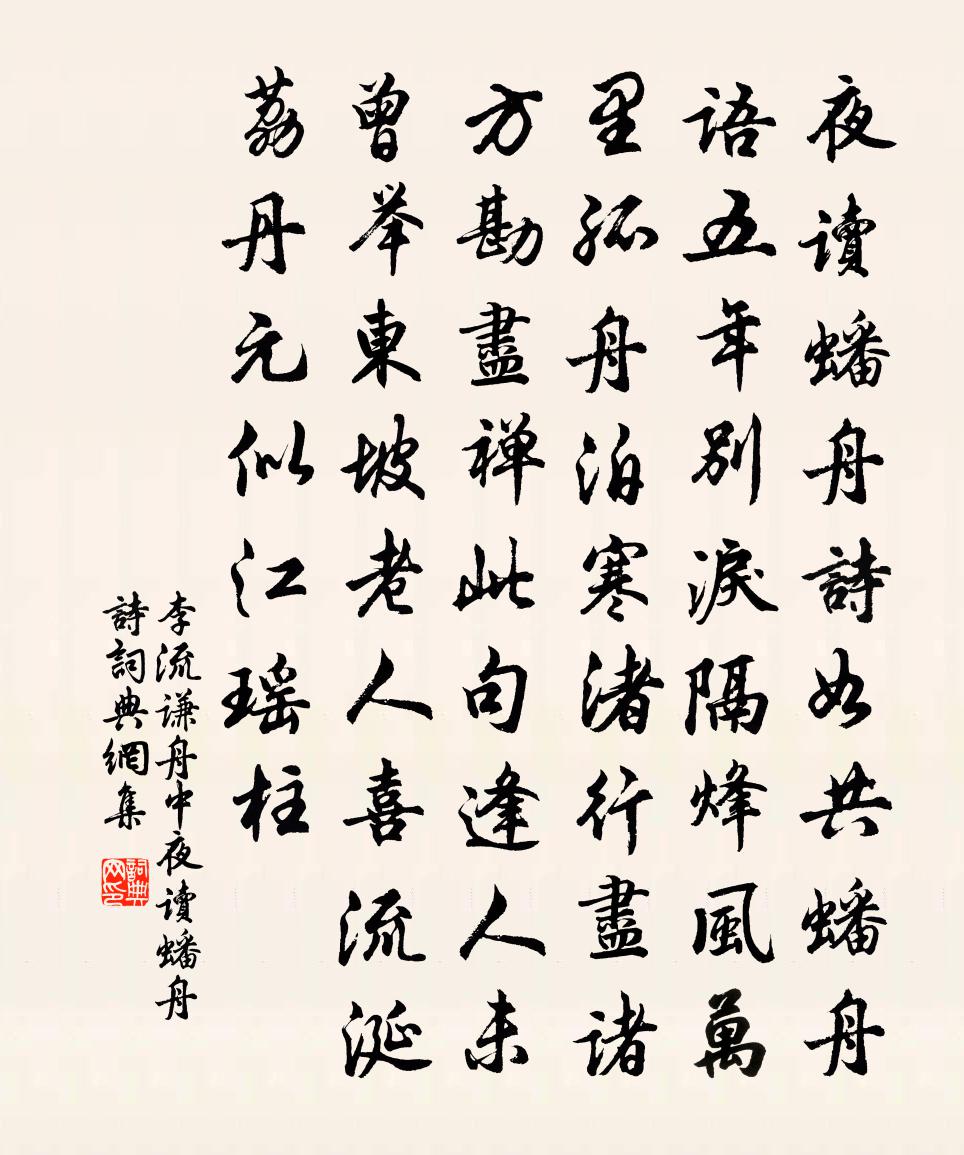 夜讀蟠舟詩如共蟠舟
語五年別淚隔烽風萬
里孤舟泊寒渚行盡諸
方勘盡禅此句逢人未
曾举東坡老人喜流涎
荔丹元似江瑶柱
李流谦舟中夜讀蟠舟
詩詞典網集
詞典网印